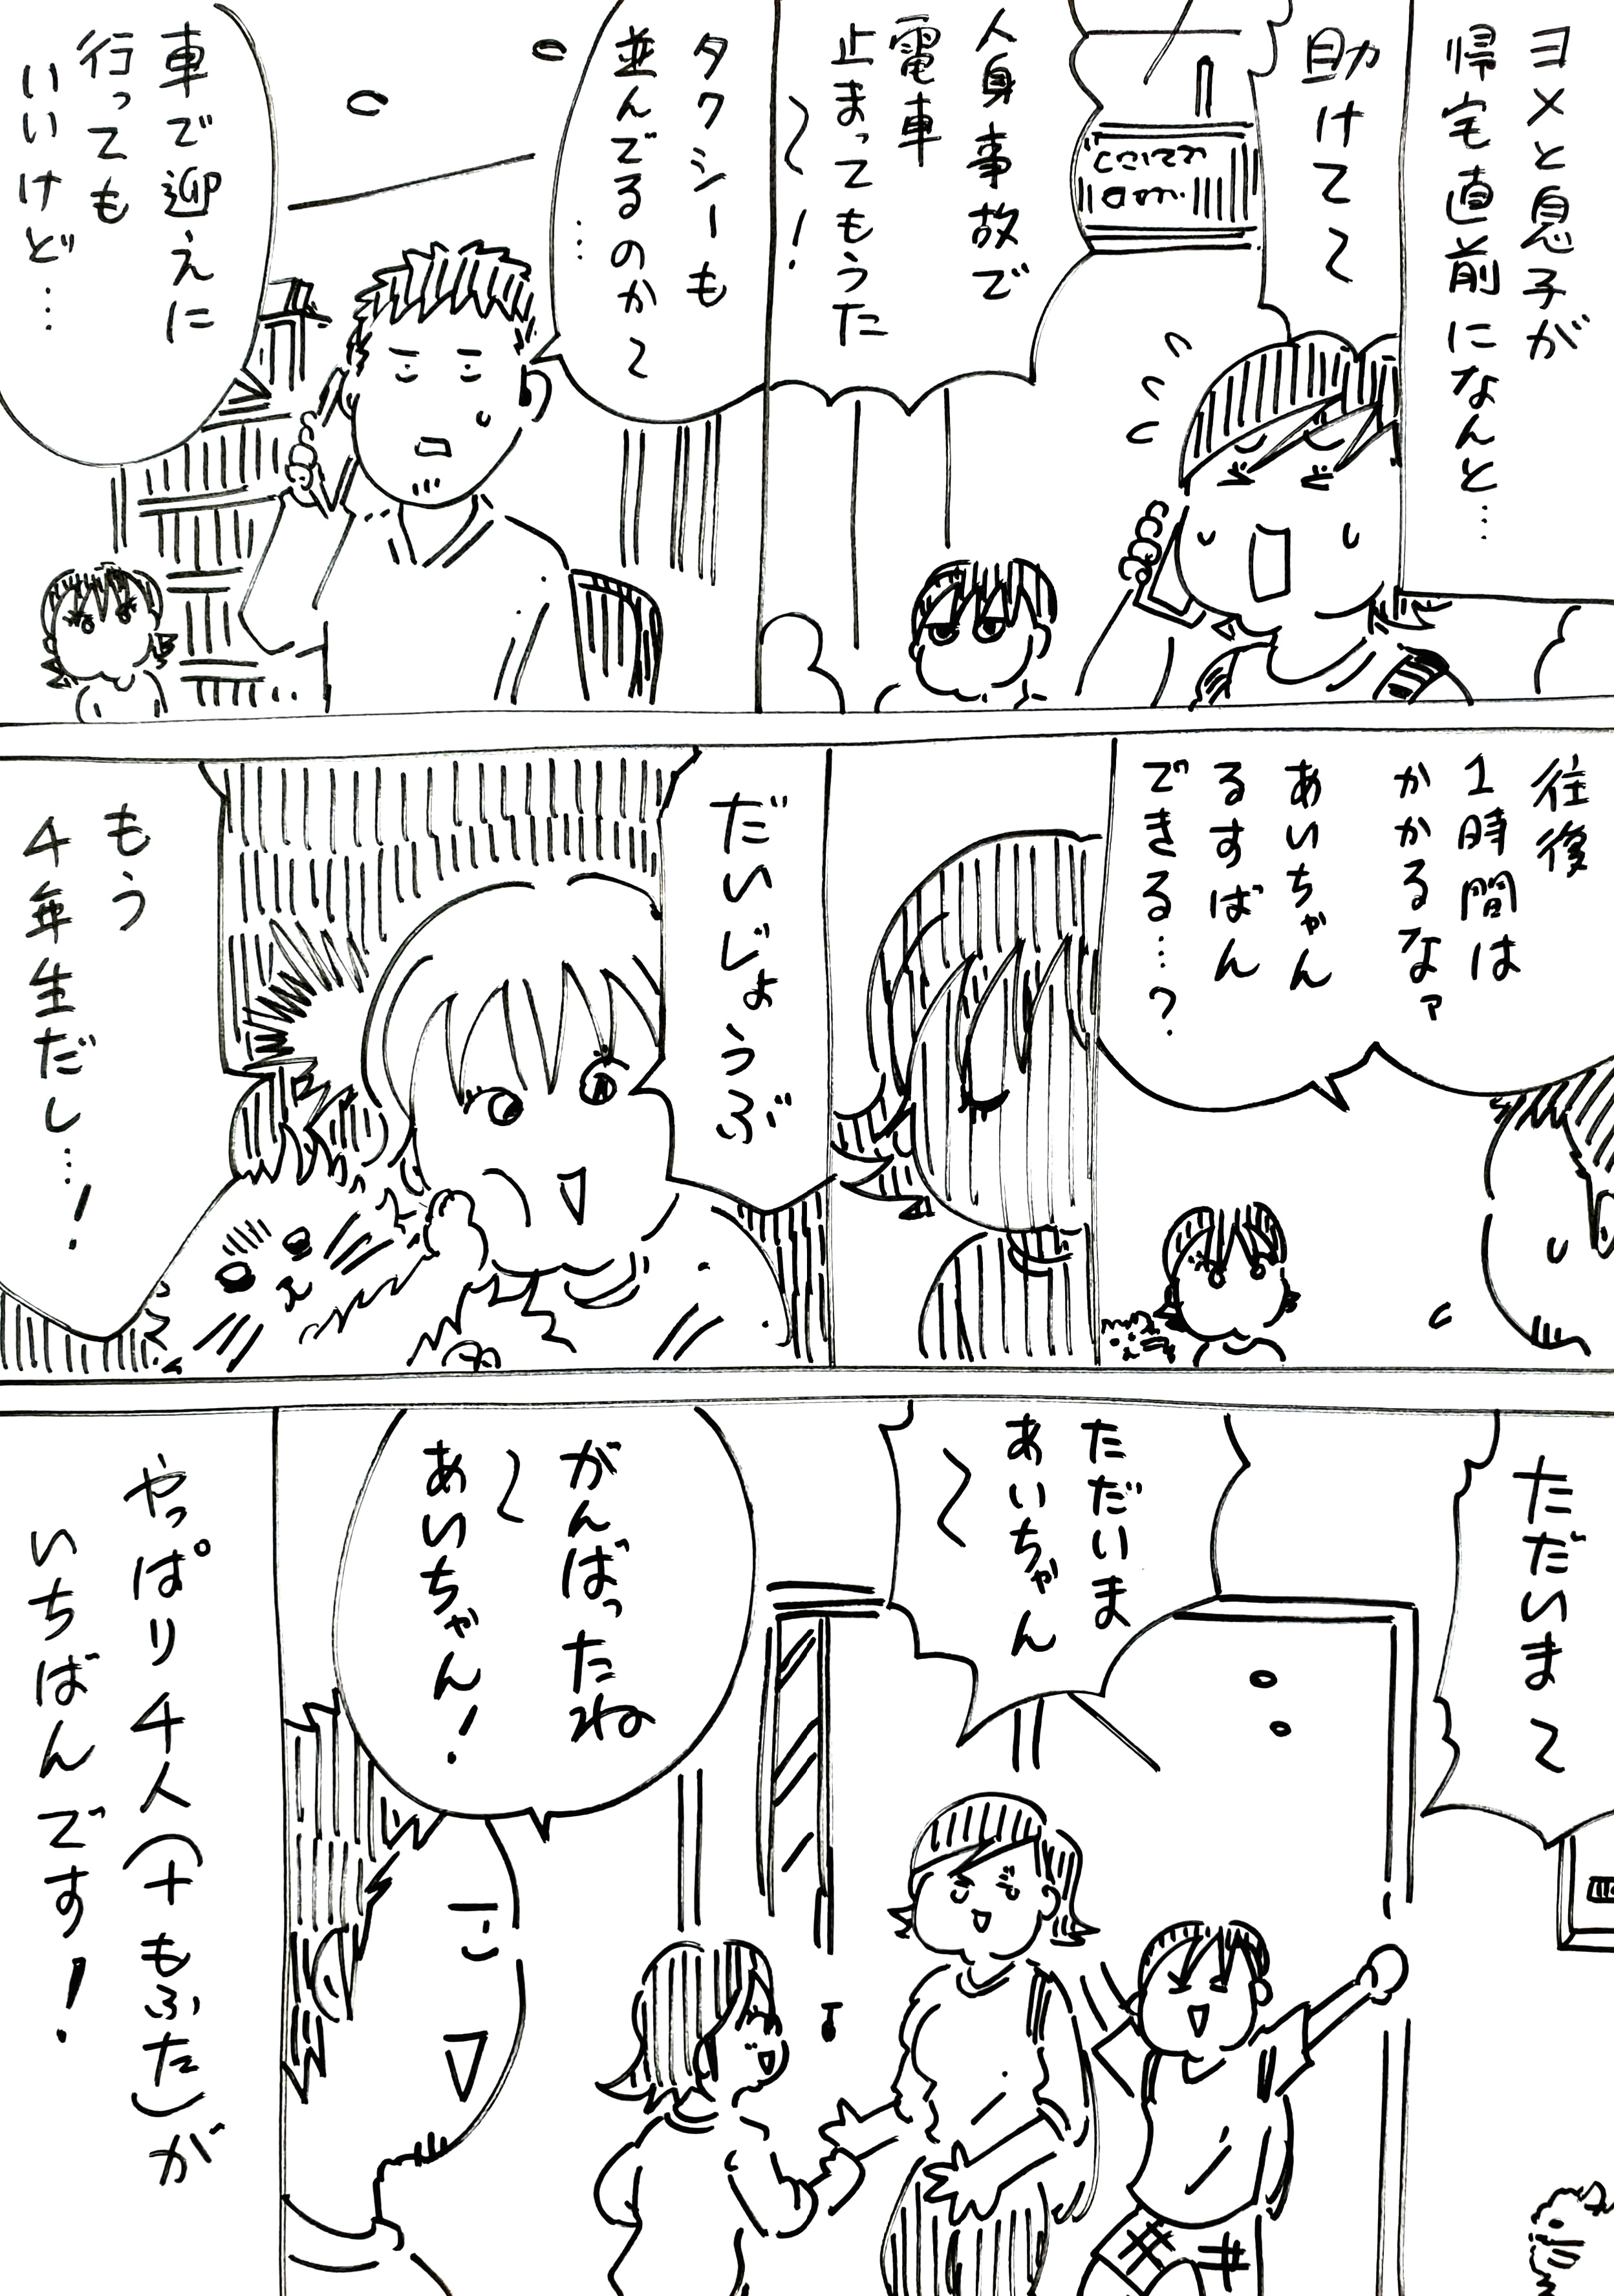 ヨメと息子が
帰宅直前になんと…
助けて〜
人身事故で
電車
止まってもうた
〜!
タクシーも
並んでるのか〜
…
車で迎えに
行っても
いいけど…
往復
1時間は
かかるなァ
あいちゃん
るすばん
できる…?
だいじょうぶ
もう
4年生だし…!
ただいま〜
ただいま
あいちゃん
〜
がんばったね
〜
あいちゃん!
やっぱり4人(+もふた)が
いちばんです!